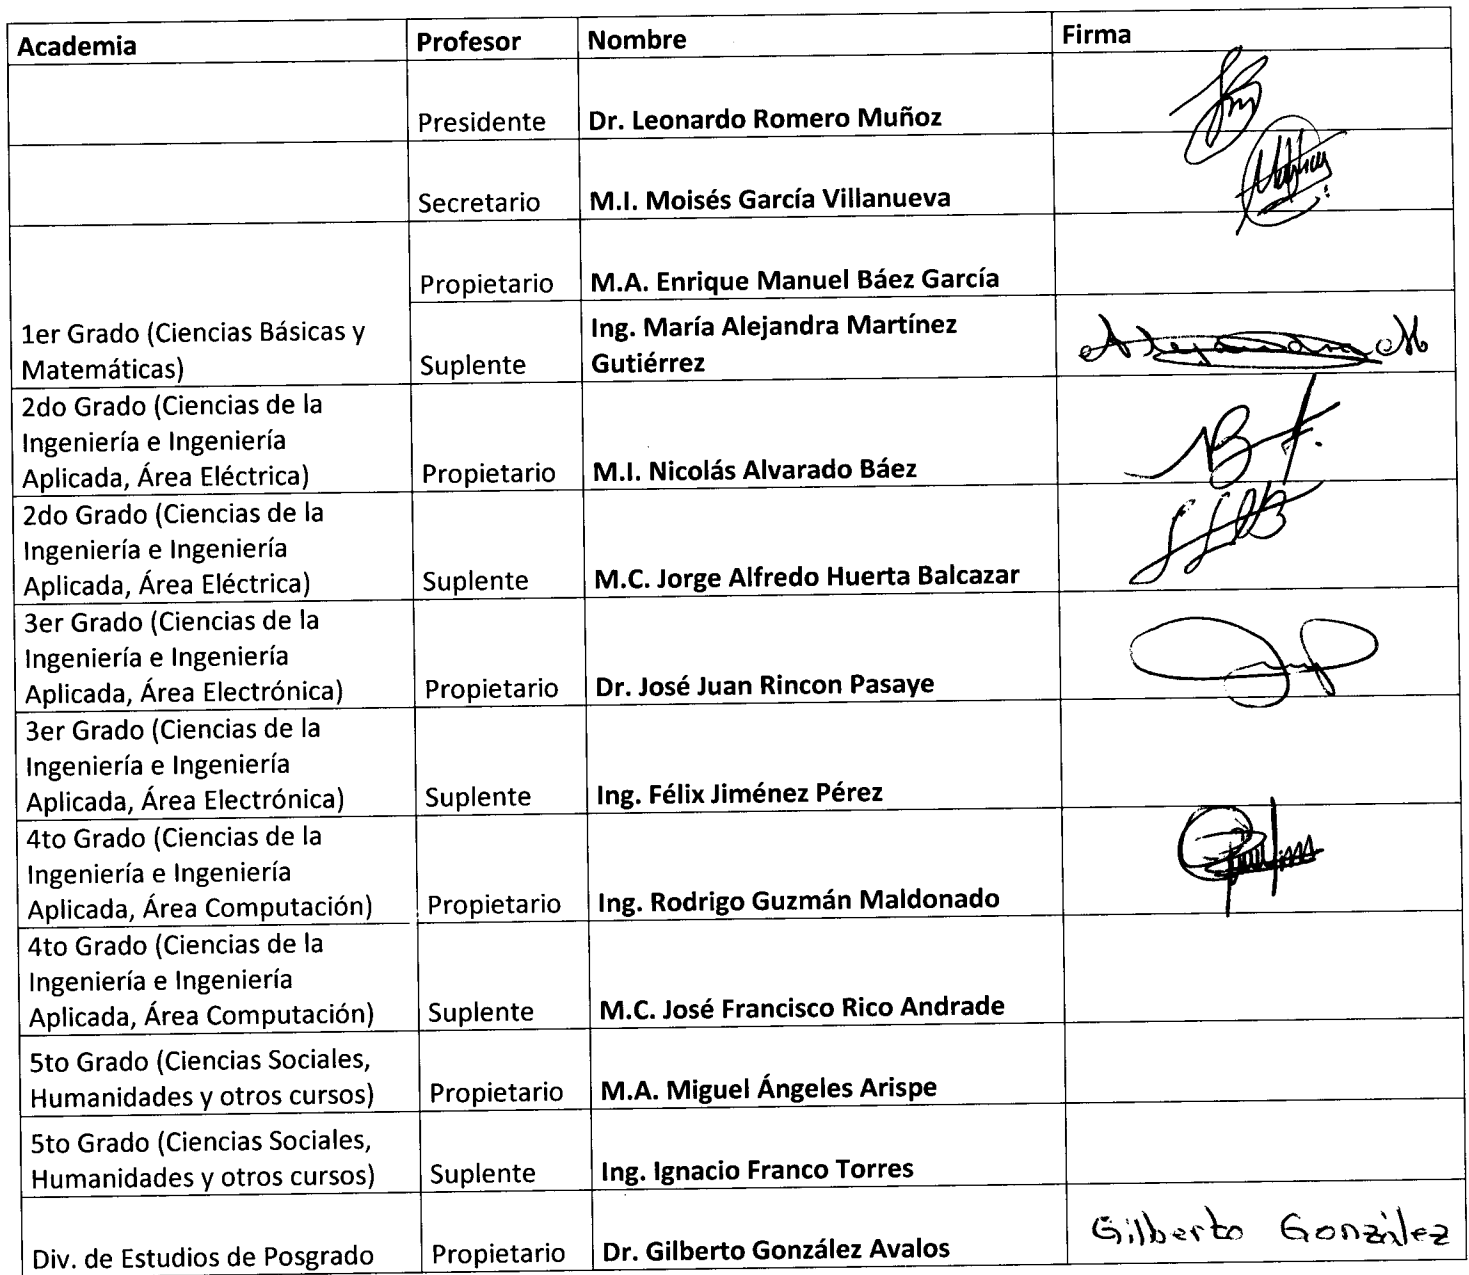 Academia Profesor Nombre Firma
Presidente Dr. Leonardo Romero Muñoz
Secretario M.I. Moisés García Villanueva
Propietario M.A. Enrique Manuel Báez García
1er Grado (Ciencias Básicas y
Matemáticas)
Suplente
Ing. María Alejandra Martínez
Gutiérrez
Alejandra M
2do Grado (Ciencias de la
Ingeniería e Ingeniería
Aplicada, Área Eléctrica)
Propietario M.I. Nicolás Alvarado Báez
2do Grado (Ciencias de la
Ingeniería e Ingeniería
Aplicada, Área Eléctrica)
Suplente M.C. Jorge Alfredo Huerta Balcazar
3er Grado (Ciencias de la
Ingeniería e Ingeniería
Aplicada, Área Electrónica)
Propietario Dr. José Juan Rincon Pasaye
3er Grado (Ciencias de la
Ingeniería e Ingeniería
Aplicada, Área Electrónica)
Suplente Ing. Félix Jiménez Pérez
4to Grado (Ciencias de la
Ingeniería e Ingeniería
Aplicada, Área Computación)
Propietario Ing. Rodrigo Guzmán Maldonado
4to Grado (Ciencias de la
Ingeniería e Ingeniería
Aplicada, Área Computación)
Suplente M.C. José Francisco Rico Andrade
5to Grado (Ciencias Sociales,
Humanidades y otros cursos)
Propietario M.A. Miguel Ángeles Arispe
5to Grado (Ciencias Sociales,
Humanidades y otros cursos)
Suplente Ing. Ignacio Franco Torres
Div. de Estudios de Posgrado Propietario Dr. Gilberto González Avalos Gilberto González